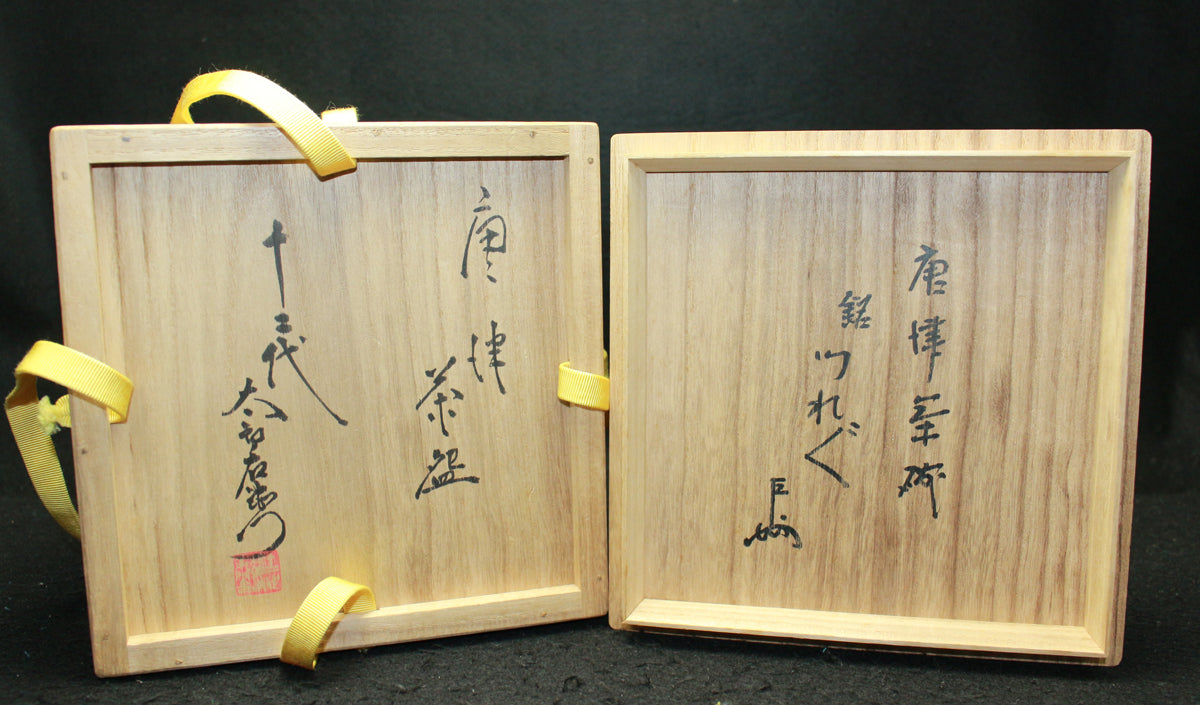 唐津
茶盌
十三代
太郎右衛門
唐津茶碗
銘
つれ〲